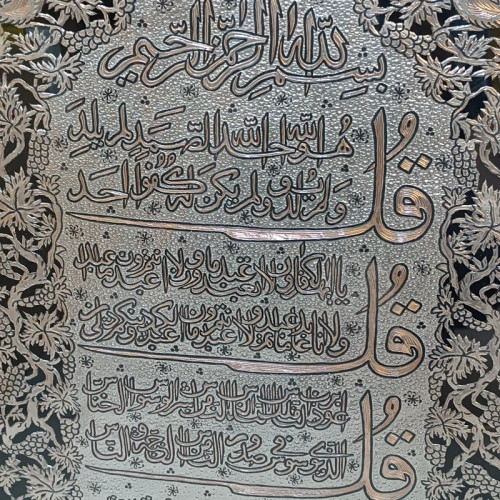 بسم الله الرحمن الرحيم
قل هو الله احد الله الصمد لم يلد
ولم يولد ولم يكن له كفوا احد
قل يا ايها الكافرون لا اعبد ما تعبدون ولا انتم عابدون ما اعبد
ولا انا عابد ما عبدتم ولا انتم عابدون ما اعبد لكم دينكم ولي دين
قل اعوذ برب الناس ملك الناس اله الناس من شر الوسواس الخناس
الذي يوسوس في صدور الناس من الجنة والناس